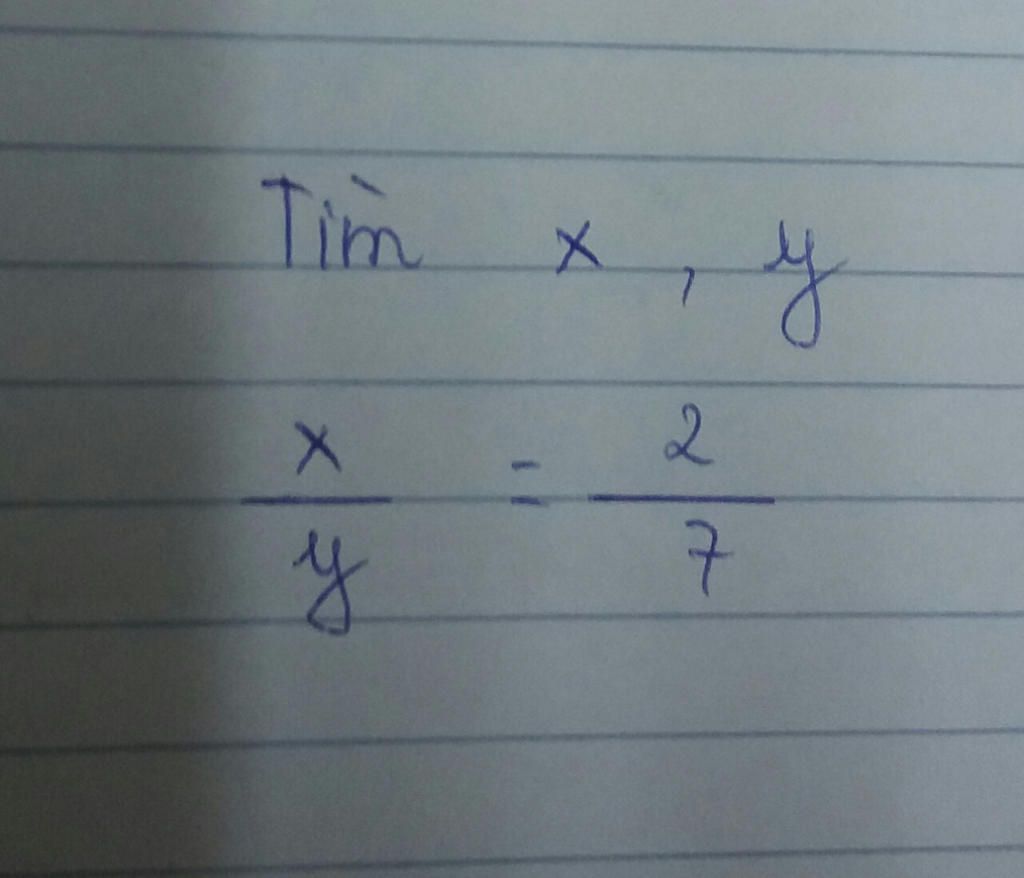 Tìm x, y
x/y = 2/7